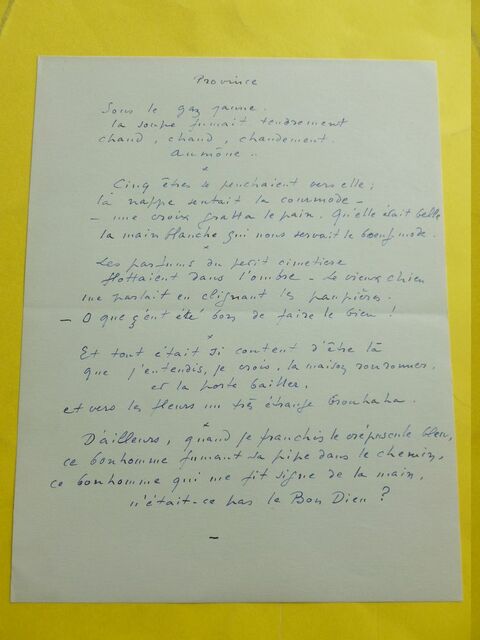 Province
Sous le gaz jaune.
la soupe fumait tendrement
chaud, chaud, chaudement.
aumône..
*
Cinq êtres se penchaient vers elle;
la nappe sentait la commode -
- une croix gratta le pain. Qu'elle était belle
la main blanche qui nous servait le boeuf mode.
*
Les parfums du petit cimetière
flottaient dans l'ombre - Le vieux chien
me parlait en clignant les paupières.
- O que c'ent été bon de faire le bien !
*
Et tout était si content d'être là
que j'entendis, je crois, la maison ronronner,
et la porte bailler,
et vers les fleurs un très étrange brouhaha.
*
D'ailleurs, quand je franchis le crépuscule bleu,
ce bonhomme fumant sa pipe dans le chemin,
ce bonhomme qui me fit signe de la main,
n'était-ce pas le Bon Dieu ?
-